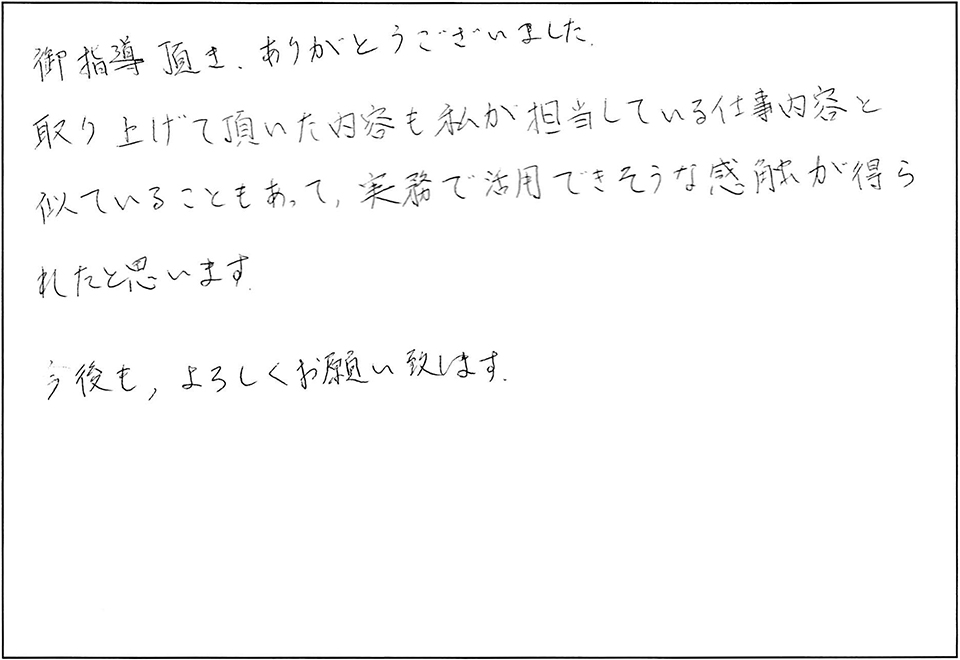 御指導頂き、ありがとうございました.
取り上げて頂いた内容も私が担当している仕事内容と
似ていることもあって, 実務で活用できそうな感触が得ら
れたと思います.
今後も, よろしくお願い致します.